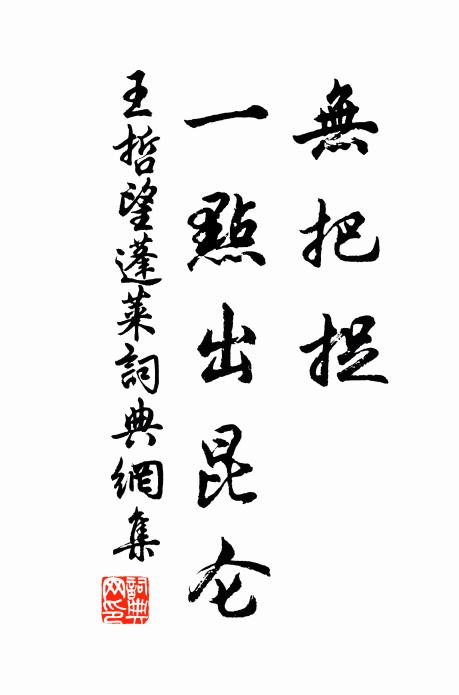 無把捉
一點出昆仑
王哲望蓬莱詞典網集
詞典
网印